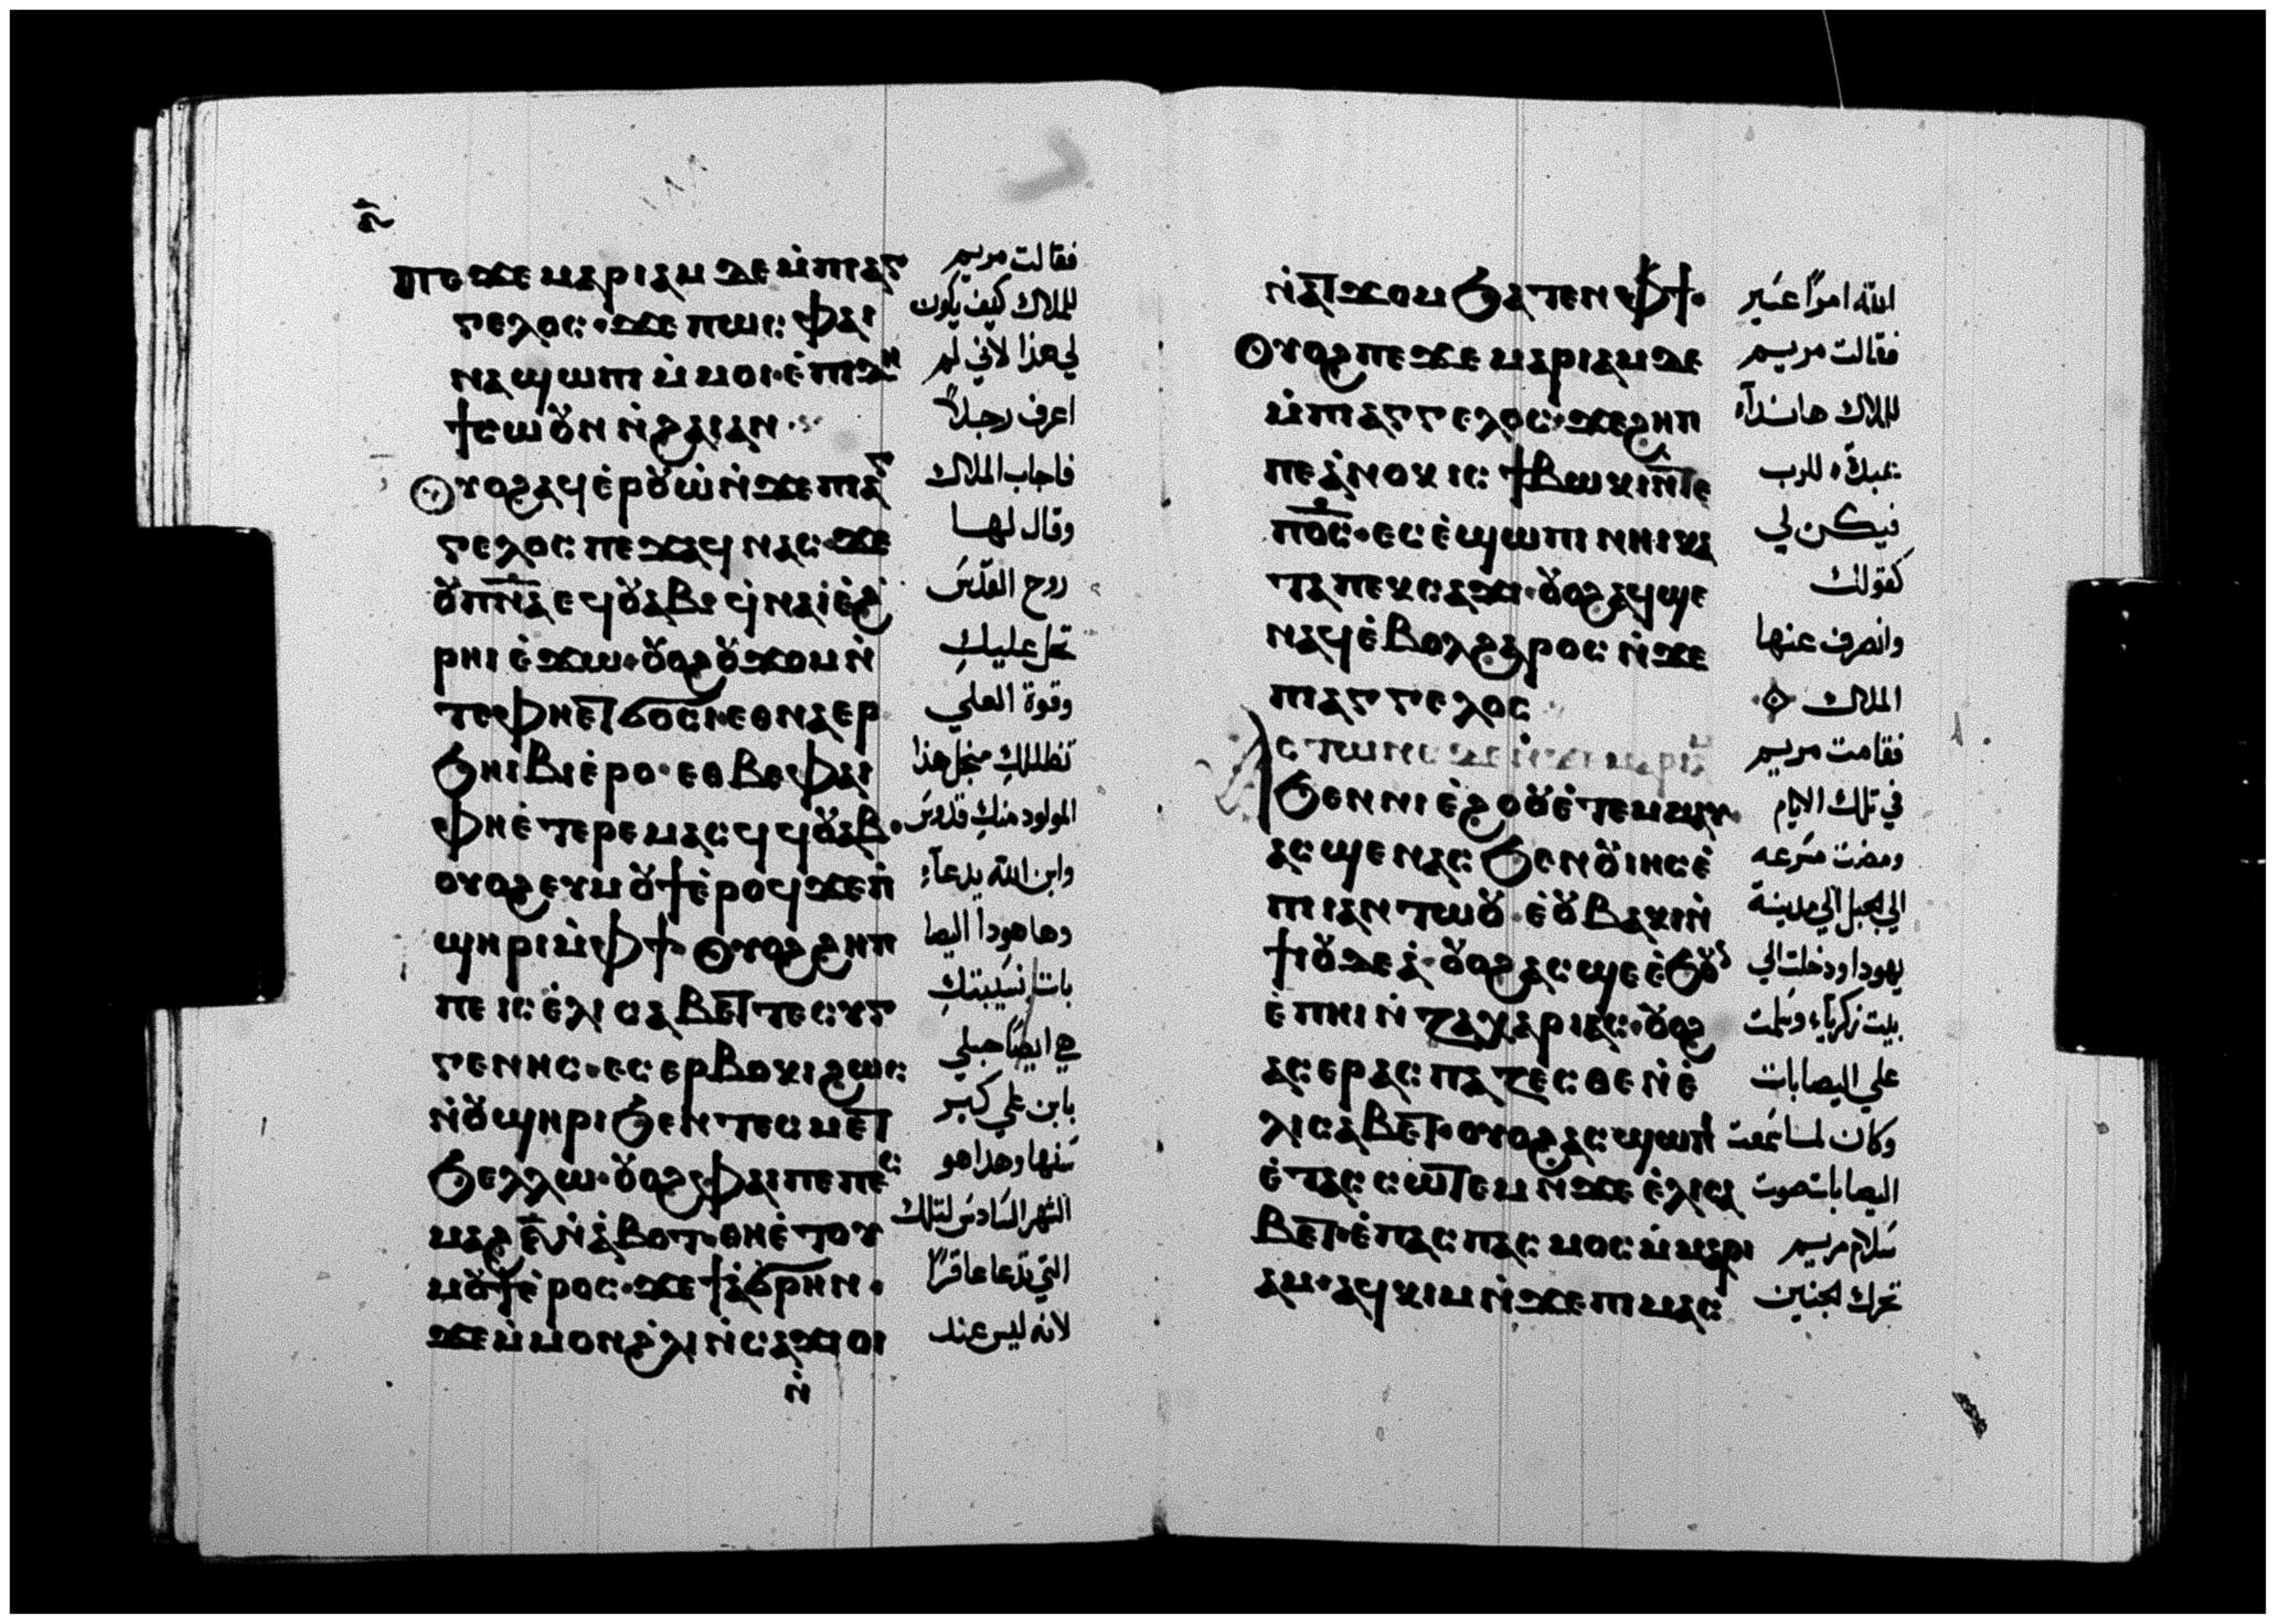 ⲡⲉϫⲉ ⲙⲁⲣⲓⲁⲙ ⲇⲉ ⲙ̇ⲡⲓⲁⲅ
ⲅⲉⲗⲟⲥ· ϫⲉ ⲡⲱⲥ ⲫⲁⲓ
ⲛⲁϣⲱⲡⲓ ⲙ̇ⲙⲟⲓ· ⲉ̇ⲡⲓⲇⲏ
ϯⲥⲱⲟⲩⲛ ⲛ̇ϩⲁⲓ ⲁⲛ·
ⲟⲩⲟϩ ⲁϥⲉ̇ⲣⲟⲩⲱ̇ ⲛ̇ϫⲉ ⲡⲓⲁⲅ
ⲅⲉⲗⲟⲥ ⲡⲉϫⲁϥ ⲛⲁⲥ· ϫⲉ
ⲟⲩⲡ̅ⲛ̅ⲁ̅ ⲉϥⲟⲩⲁⲃ· ϥ̇ⲛⲁⲓ̇ ⲉ̇ϩ
ⲣⲏⲓ ⲉ̇ϫⲱ· ⲟⲩⲟϩ ⲟⲩϫⲟⲙ ⲛ̇
ⲧⲉ ⲫⲏⲉⲧϭⲟⲥⲓ· ⲉⲑⲛⲁⲉⲣ
ϧⲏⲓⲃⲓ ⲉ̇ⲣⲟ· ⲉⲑⲃⲉ ⲫⲁⲓ
ⲫⲏⲉ̇ⲧⲉⲣⲉⲙⲁⲥϥ ϥⲟⲩⲁⲃ·
ⲟⲩⲟϩ ⲉⲩⲙⲟⲩϯ ⲉ̇ⲣⲟϥ ϫⲉ ⲡ̇
ϣⲏⲣⲓ ⲙ̇ⲫϯ· ⲟⲩⲟϩ ϩⲏⲡ
ⲡⲉ ⲓⲥ ⲉ̇ⲗⲓⲥⲁⲃⲉⲧ ⲧⲉⲥⲩⲅ
ⲅⲉⲛⲏⲥ· ⲉⲥⲉⲣⲃⲟⲕⲓ ϩⲱⲥ
ⲛ̇ⲟⲩϣⲏⲣⲓ ϧⲉⲛ ⲧⲉⲥⲙⲉⲧ
ϧⲉⲗⲗⲱ· ⲟⲩⲟϩ ⲫⲁⲓ ⲡⲉ ⲡⲉⲥ
ⲙⲁϩ ⲋ̅ ⲛ̇ⲁ̇ⲃⲟⲧ· ⲑⲏⲉ̇ⲧⲟⲩ
ⲙⲟⲩϯ ⲉ̇ⲣⲟⲥ· ϫⲉ ϯⲁ̇ϭⲣⲏⲛ·
ϫⲉ ⲙ̇ⲙⲟⲛ ϩ̇ⲗⲓ ⲛ̇ⲥⲁϫⲓ ⲟⲓ
ⲛ̇
فقالت مريم
للملاك كيف يكون
لي هذا لاني لم
اعرف رجلاً
فاجاب الملاك
وقال لها
روح القدس
تحل عليكِ
وقوة العلي
تظللكِ منجل هذا
المولود منكِ قدوس
وابن الله يدعاء
وها هوذا اليصا
بات نسيبتكِ
هي ايضاً حبلي
بابن علي كبر
سنها وهذا هو
الشهر السادس لتلك
التي تدعا عاقراً
لانه ليس عند
ⲛ̇ⲁⲧϫⲟⲙ ϧⲁⲧⲉⲛ ⲫϯ·
ⲟⲩⲟϩ ⲡⲉϫⲉ ⲙⲁⲣⲓⲁⲙ ⲇⲉ
ⲙ̇ⲡⲓⲁⲅⲅⲉⲗⲟⲥ· ϫⲉ ϩⲏⲡ
ⲡⲉ ⲁ̇ⲛⲟⲕ ⲓⲥ ϯⲃⲱⲕⲓ ⲛ̇ⲧⲉ
ⲡⲟ̅ⲥ̅· ⲉⲥⲉ̇ϣⲱⲡⲓ ⲛⲏⲓ ⲕⲁ
ⲧⲁ ⲡⲉⲕⲥⲁϫⲓ· ⲟⲩⲟϩ ⲁϥϣⲉ
ⲛⲁϥ ⲉ̇ⲃⲟⲗ ϩⲁⲣⲟⲥ ⲛ̇ϫⲉ
ⲡⲓⲁⲅⲅⲉⲗⲟⲥ
ⲁⲥⲧⲱⲛⲥ ⲇⲉ ⲛ̇ϫⲉ ⲙⲁⲣⲓⲁⲙ
ϧⲉⲛ ⲛⲓⲉ̇ϩⲟⲟⲩ ⲉ̇ⲧⲉⲙⲙⲁⲩ·
ⲁⲥϣⲉ ⲛⲁⲥ ϧⲉⲛ ⲟⲩⲓⲏⲥ ⲉ̇
ⲡⲓⲁⲛⲧⲱⲟⲩ· ⲉ̇ⲟⲩⲃⲁⲕⲓ ⲛ̇
ϯⲓⲟⲩⲇⲉⲁ̇· ⲟⲩⲟϩ ⲁⲥϣⲉ ⲉ̇ϧⲟⲩⲛ
ⲉ̇ⲡⲏⲓ ⲛ̇ⲍⲁⲭⲁⲣⲓⲁⲥ· ⲟⲩⲟϩ
ⲁⲥⲉⲣⲁⲥⲡⲁⲍⲉⲥⲑⲉ ⲛ̇ⲉ̇
ⲗⲓⲥⲁⲃⲉⲧ· ⲟⲩⲟϩ ⲁⲥϣⲱⲡⲓ
ⲉ̇ⲧⲁⲥⲥⲱⲧⲉⲙ ⲛ̇ϫⲉ ⲉ̇ⲗⲓⲥⲁ
ⲃⲉⲧ· ⲉ̇ⲡⲁⲥⲡⲁⲥⲙⲟⲥ ⲙ̇ⲙⲁⲣⲓ
ⲁⲙ· ⲁϥⲕⲓⲙ ⲛ̇ϫⲉ ⲡⲓⲙⲁⲥ
الله امراً عسير
فقالت مريم
للملاك هانذاء
عبدة للرب
فيكن لي
كقولك
وانصرف عنها
الملاك
فقامت مريم
في تلك الايام
ومضت مسرعه
الي الجبل الي مدينة
يهودا ودخلت الي
بيت زكرياء وسلمت
علي اليصابات
وكان لما سمعت
اليصابات صوت
سلام مريم
تحرك الجنين